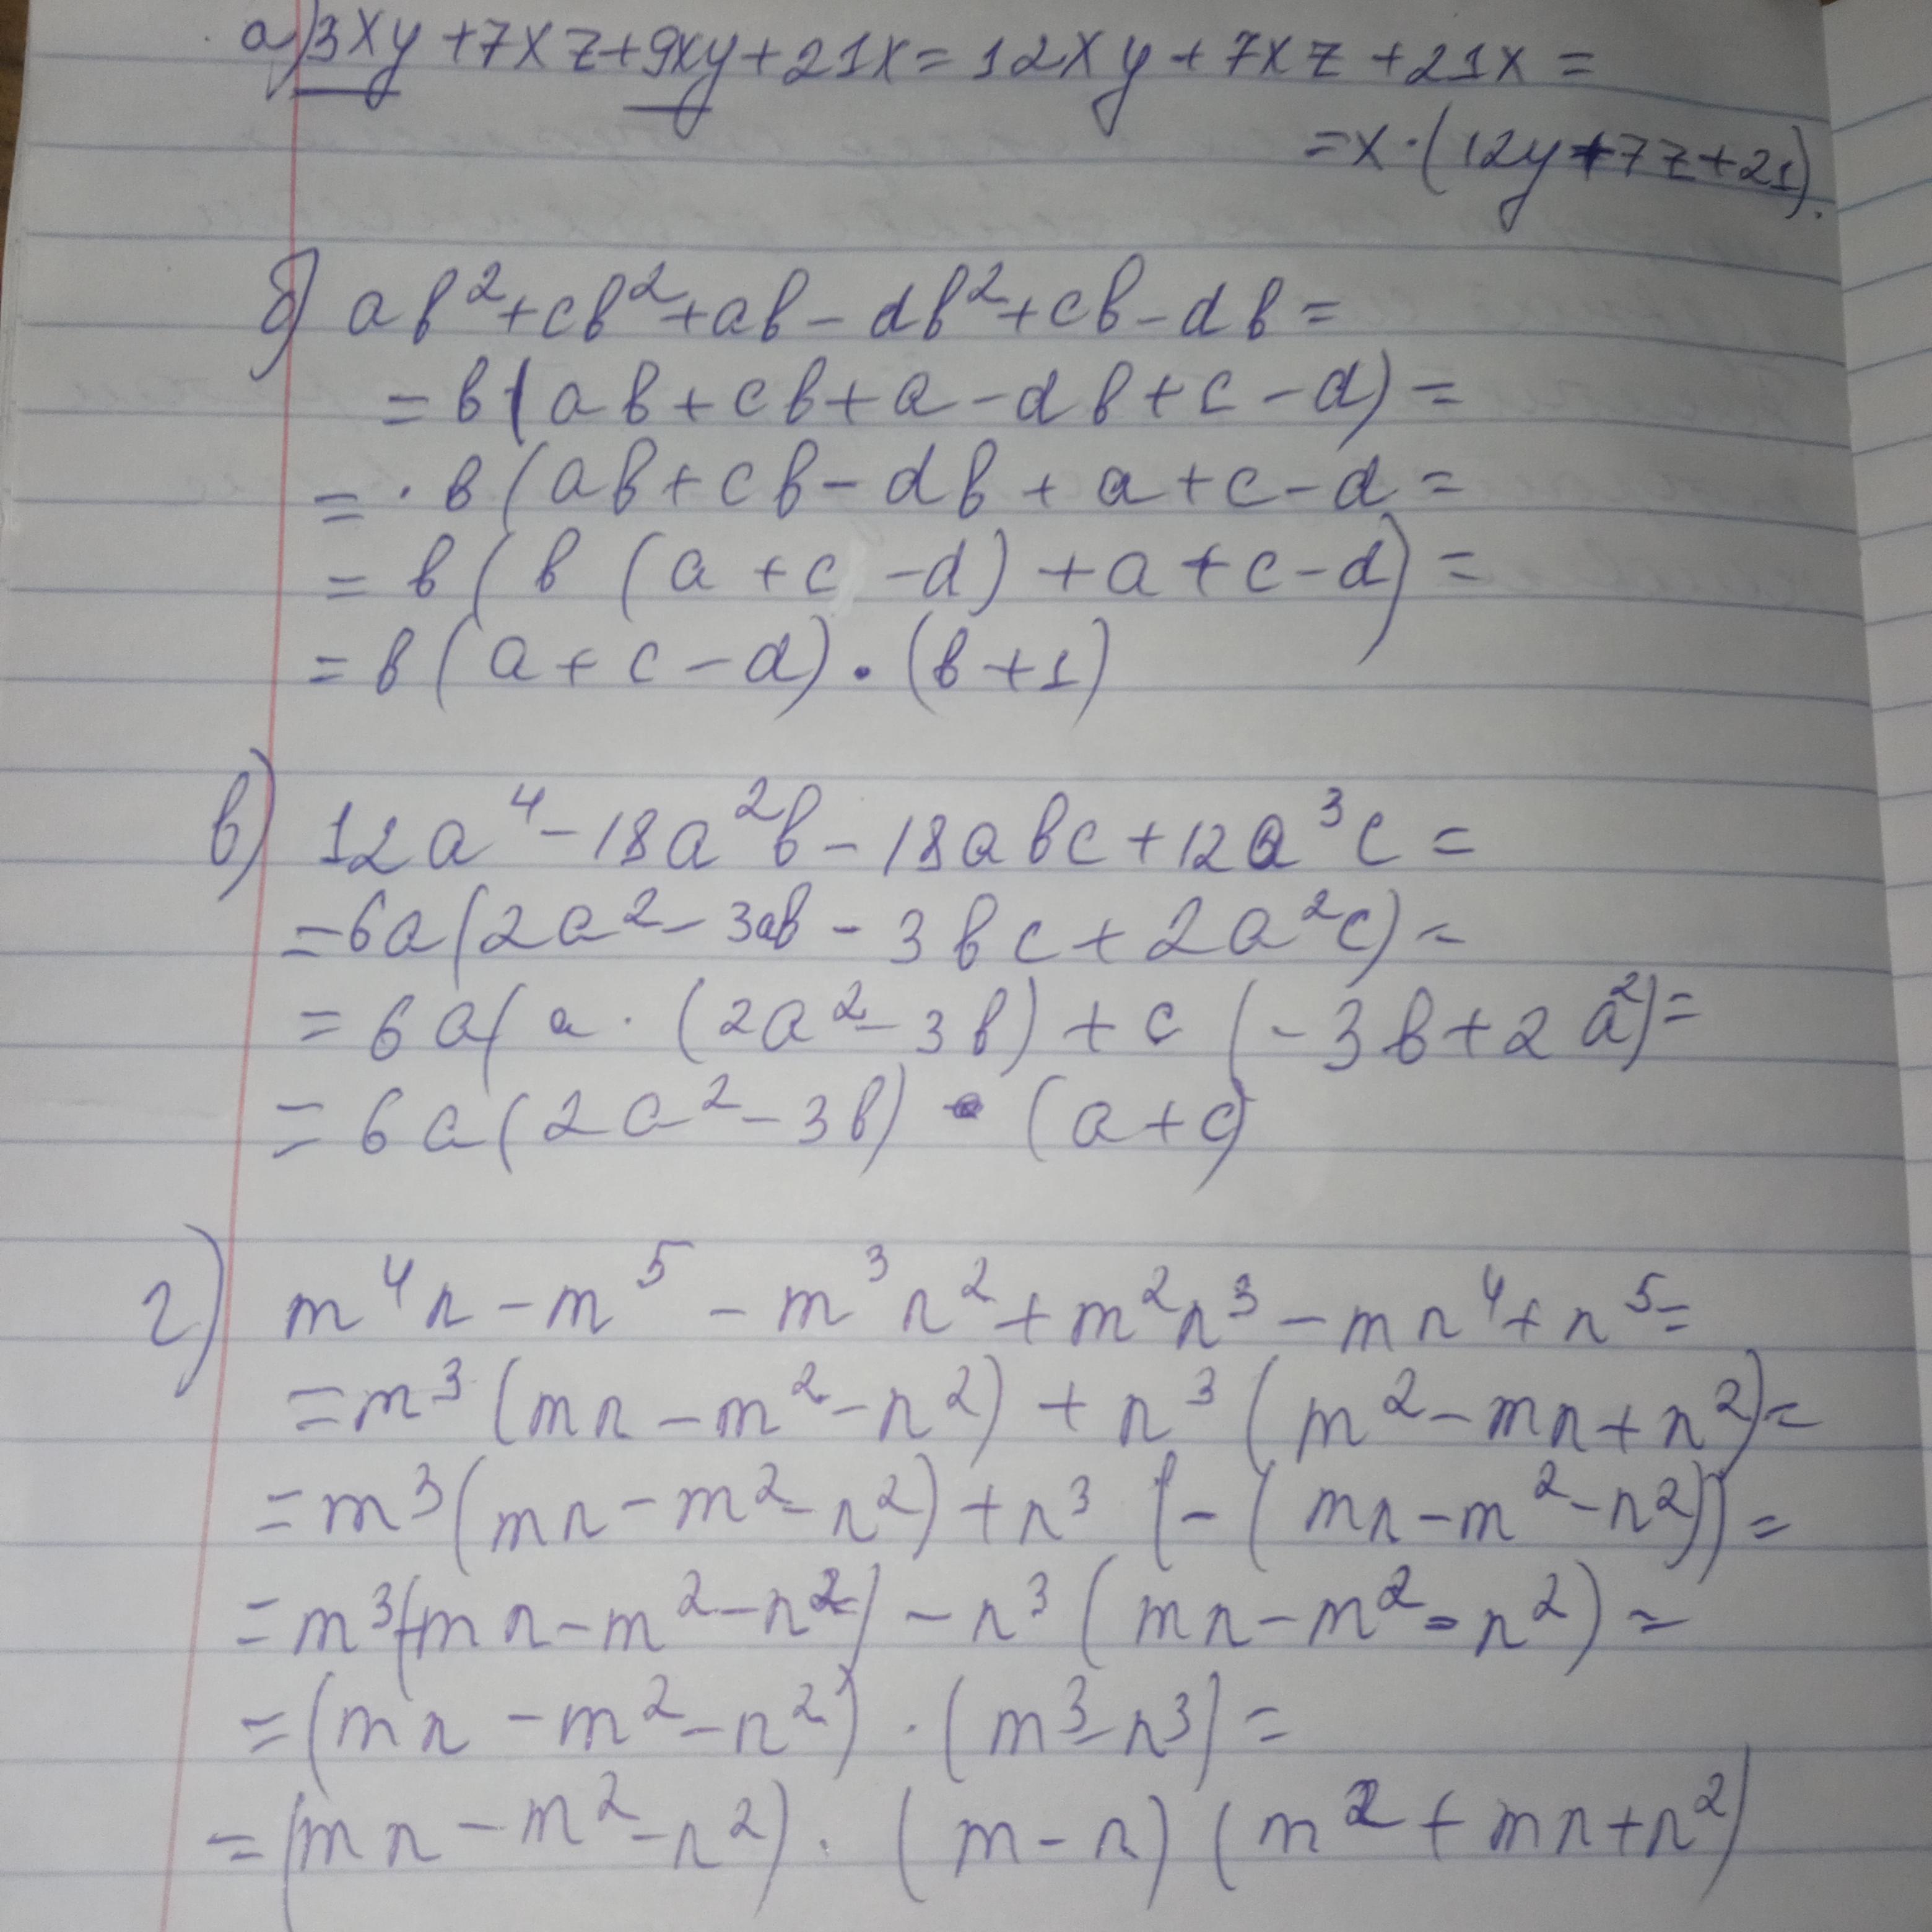 а) 3xy + 7xz + 9xy + 21x = 12xy + 7xz + 21x =
= x · (12y + 7z + 21).
б) ab² + cb² + ab - db² + cb - db =
= b(ab + cb + a - db + c - d) =
= · b(ab + cb - db + a + c - d =
= b(b(a + c - d) + a + c - d) =
= b(a + c - d) · (b + 1)
в) 12a⁴ - 18a²b - 18abc + 12a³c =
= 6a(2a² - 3ab - 3bc + 2a²c) =
= 6a(a · (2a² - 3b) + c(-3b + 2a²) =
= 6a(2a² - 3b) · (a + c)
г) m⁴n - m⁵ - m³n² + m²n³ - mn⁴ + n⁵ =
= m³(mn - m² - n²) + n³(m² - mn + n²) =
= m³(mn - m² - n²) + n³(-(mn - m² - n²)) =
= m³(mn - m² - n²) - n³(mn - m² - n²) =
= (mn - m² - n²) · (m³ - n³) =
= (mn - m² - n²) · (m - n)(m² + mn + n²)